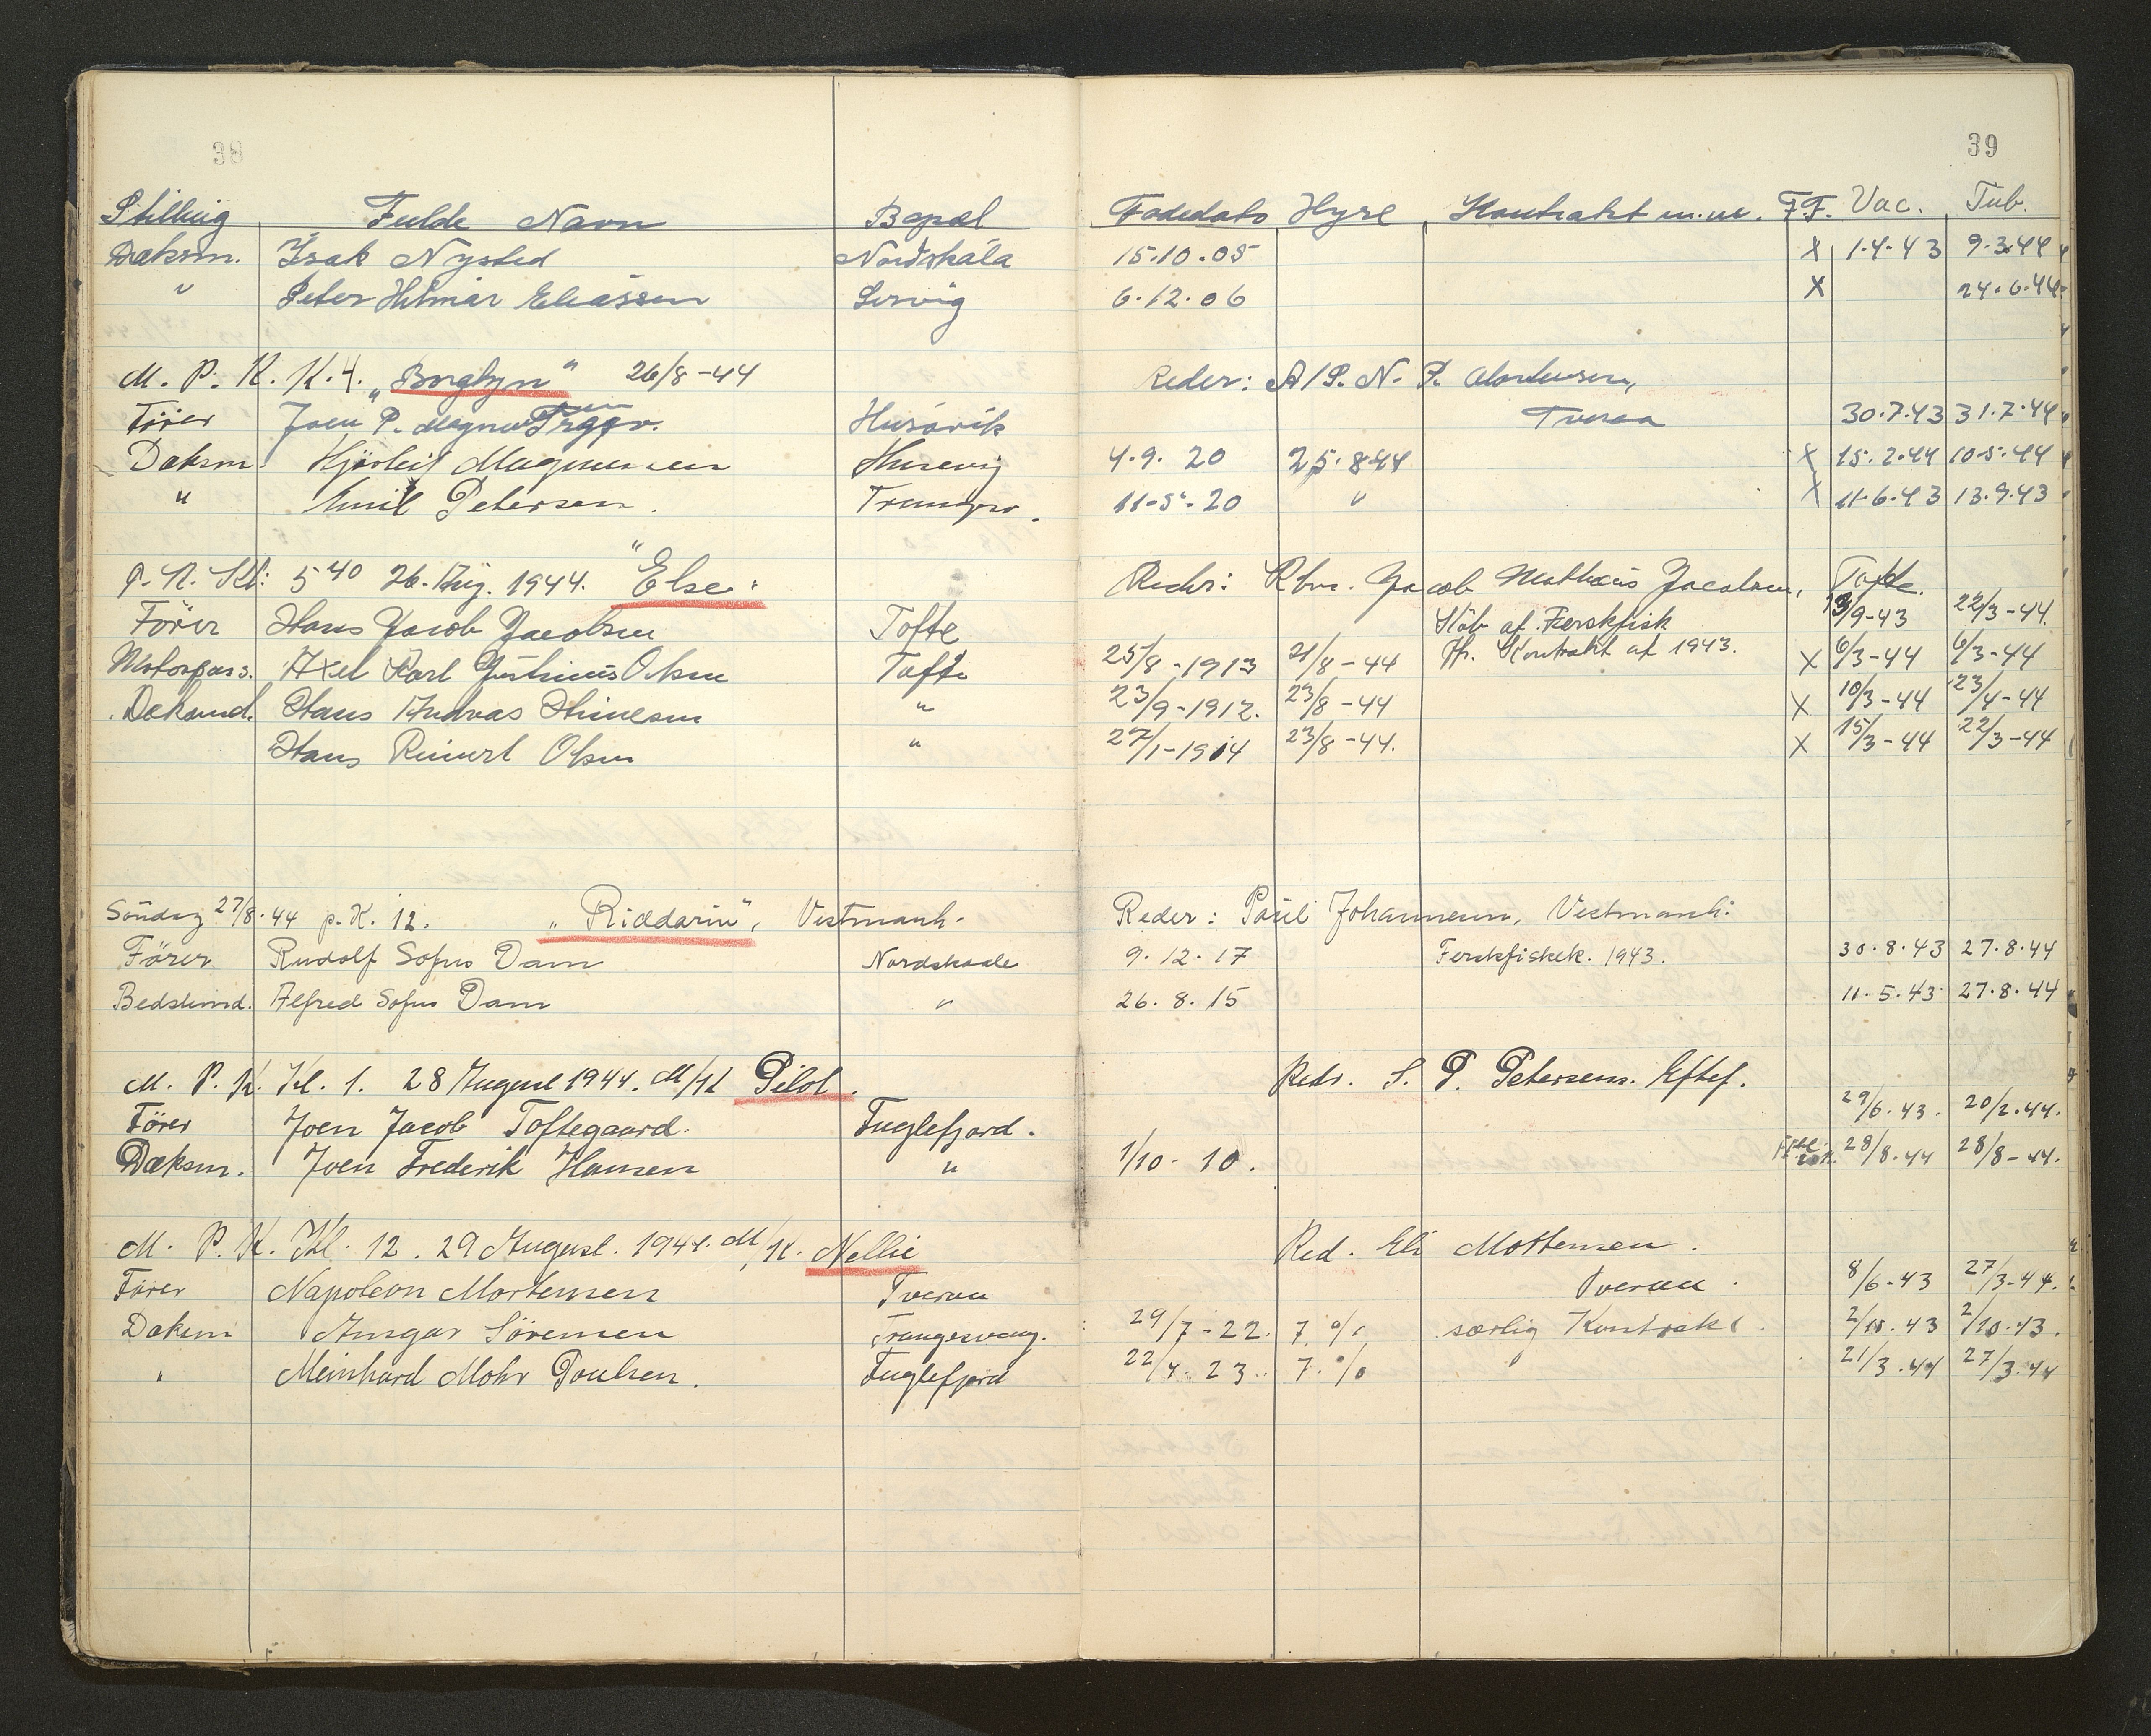 38
39
Stilling Fulde Navn Bopæl Fødedato Hyre Kontrakt m.m. F.F. Vac. Tub.
Dæksm. Isak Nysted Nordskála 15.10.05 X 1.4-43 9.3.44
" Peter Hilmar Eliassen Sørvåg 6.12.06 X 24.6.44
M. P. K. K.4. „Borglyn" 26/8-44 Reder: A/S. N. P. Mortensen,
Tveraa
Förer Joen P. Magnussen Tryggv. Húsavík 30.7.43 31.7.44
Dæksm. Hjørleif Magnussen Husevig 4.9. 20 25.8.44 X 15.2.44 10.5.44
" Emil Petersen. 11-5-20 " X 11.6.43 13.9.43
P. N. Kl: 5 40 26. Aug. 1944. "Else" Reder: Kbm. Jacob Mathæus Jacobsen, Tofte.
Förer Hans Jacob Jacobsen Tofte Köb af Ferskfisk 13/9-43 22/3-44.
Motorpass. Axel Karl Justinus Olsen Tofte 25/8-1913 21/8-44 Kontrakt af 1943. X 6/3-44 6/3-44
Dæksmd. Hans Andreas " 23/9-1912. 23/8-44 X 10/3-44 23/4-44
Hans Reinert Olsen " 27/1-1914 23/8-44. X 15/3-44 22/3-44
Söndag 27/8.44 p. K. 12. „Riddarin", Vestmanh. Reder: Poul Johannesen, Vestmanh.
Förer Rudolf Sofus Dam Nordskaale 9.12.17 Ferskfiskek. 1943. 30.8.43 27.8.44
Bedstemd. Alfred Sofus Dam " 26.8.15 11.5.43 27.8.44
M. P. K. Kl. 1. 28 August 1944. M/K Pilot. Redr. S. P. Petersens. Eftef.
Förer Joen Jacob Toftegaard. Fuglefjord. 29/6.43. 20/2.44.
Dæksm. Joen Frederik Hansen " 1/10-10. 28/8.44 28/8-44.
M. P. K. Kl. 12. 29 August. 1944. M/K. Nellie Red. Eli Mortensen.
Förer Napoleon Mortensen Tveraa Tveraa. 8/6-43 27/3-44.
Dæksm Ansgar Sörensen Trangesvaag. 29/7-22. 7 % særlig Kontrakt. 2/10.43 2/10.43.
" Meinhard Mohr Poulsen. Fuglefjord 22/4.23. 7. % " 21/3.44 27/3.44